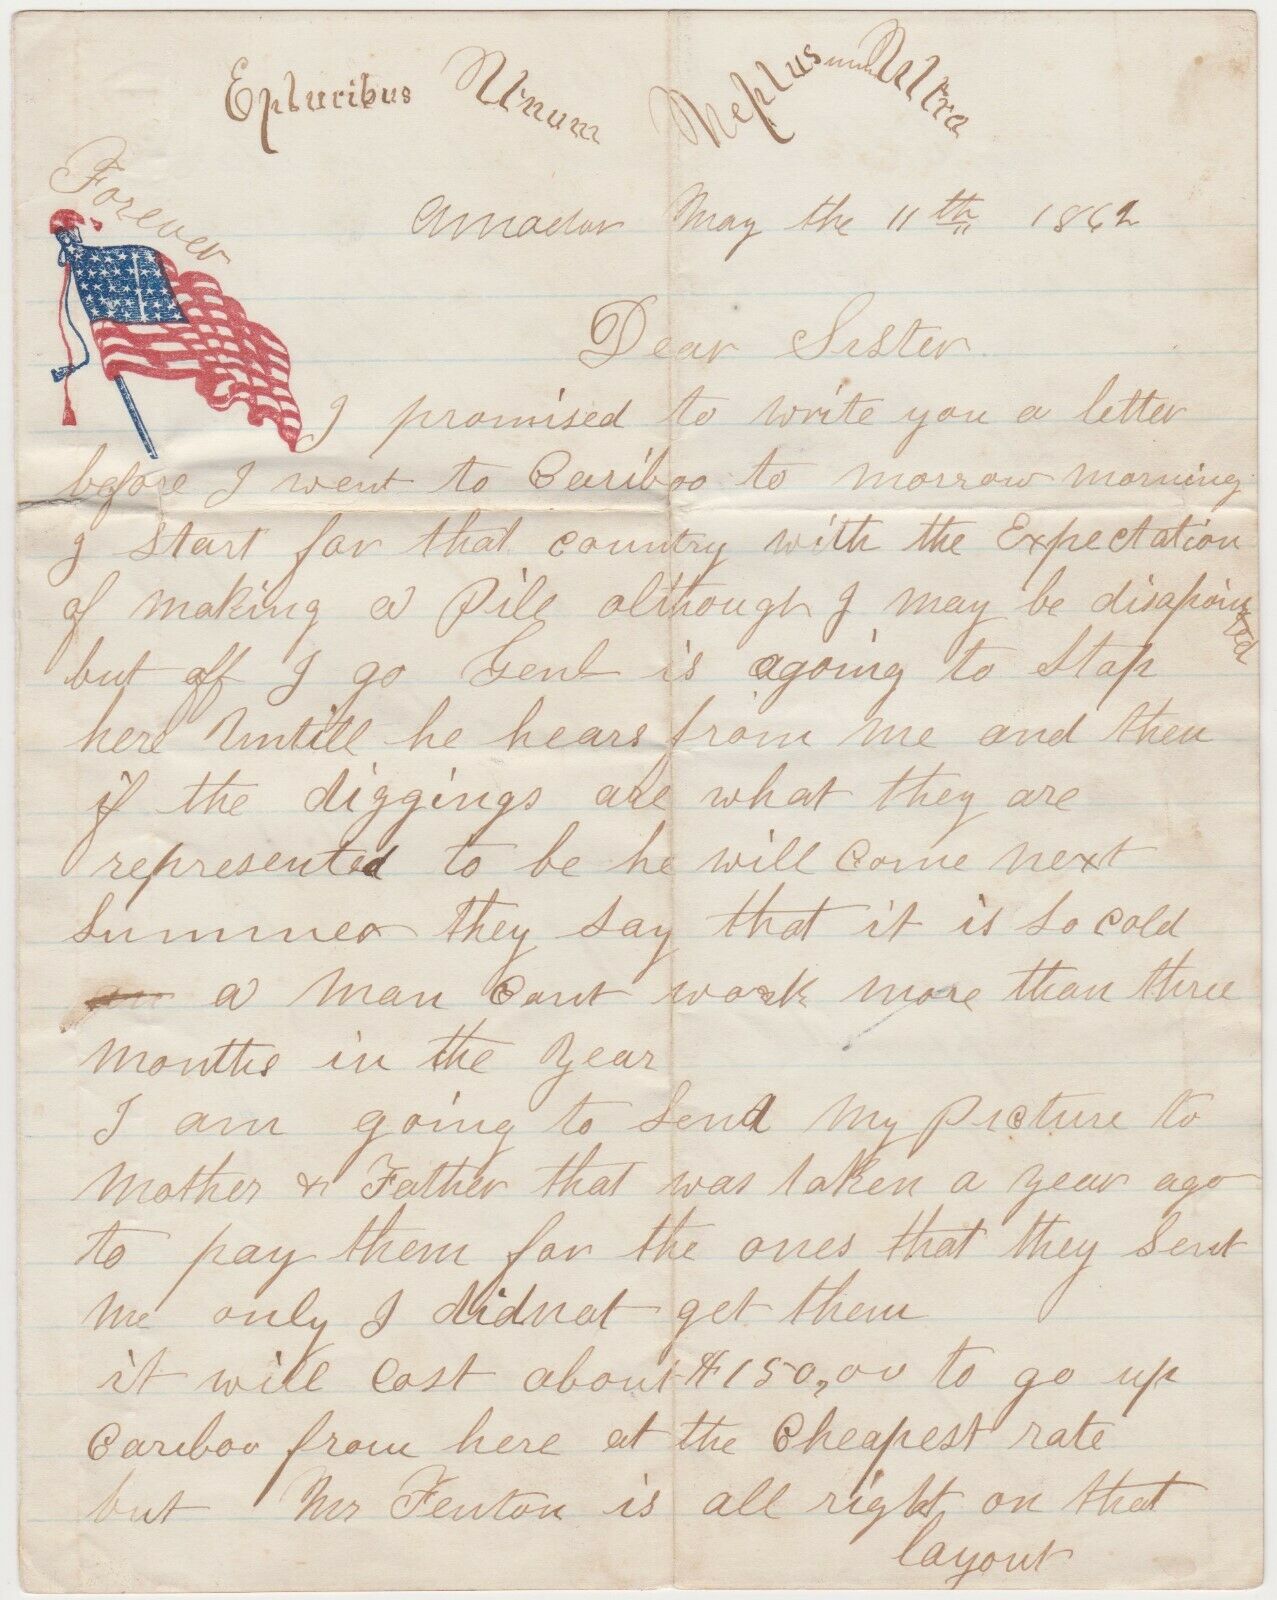 Epluribus Unum Neplus Ultra
Forever
Amador May the 11th 1862
Dear Sister
I promised to write you a letter
before I went to Cariboo to morrow morning
I start for that country with the Expectation
of making a Pile although I may be disapointed
but off I go Gent is agoing to Stop
here Untill he hears from me and then
if the diggings are what they are
represented to be he will come next
Summer they say that it is so cold
a man cant work more than three
months in the year
I am going to send my Picture to
Mother & Father that was taken a year ago
to pay them for the ones that they sent
me only I didnot get them
it will cost about $150,00 to go up
Cariboo from here at the cheapest rate
but Mr Fenton is all right on that
layout